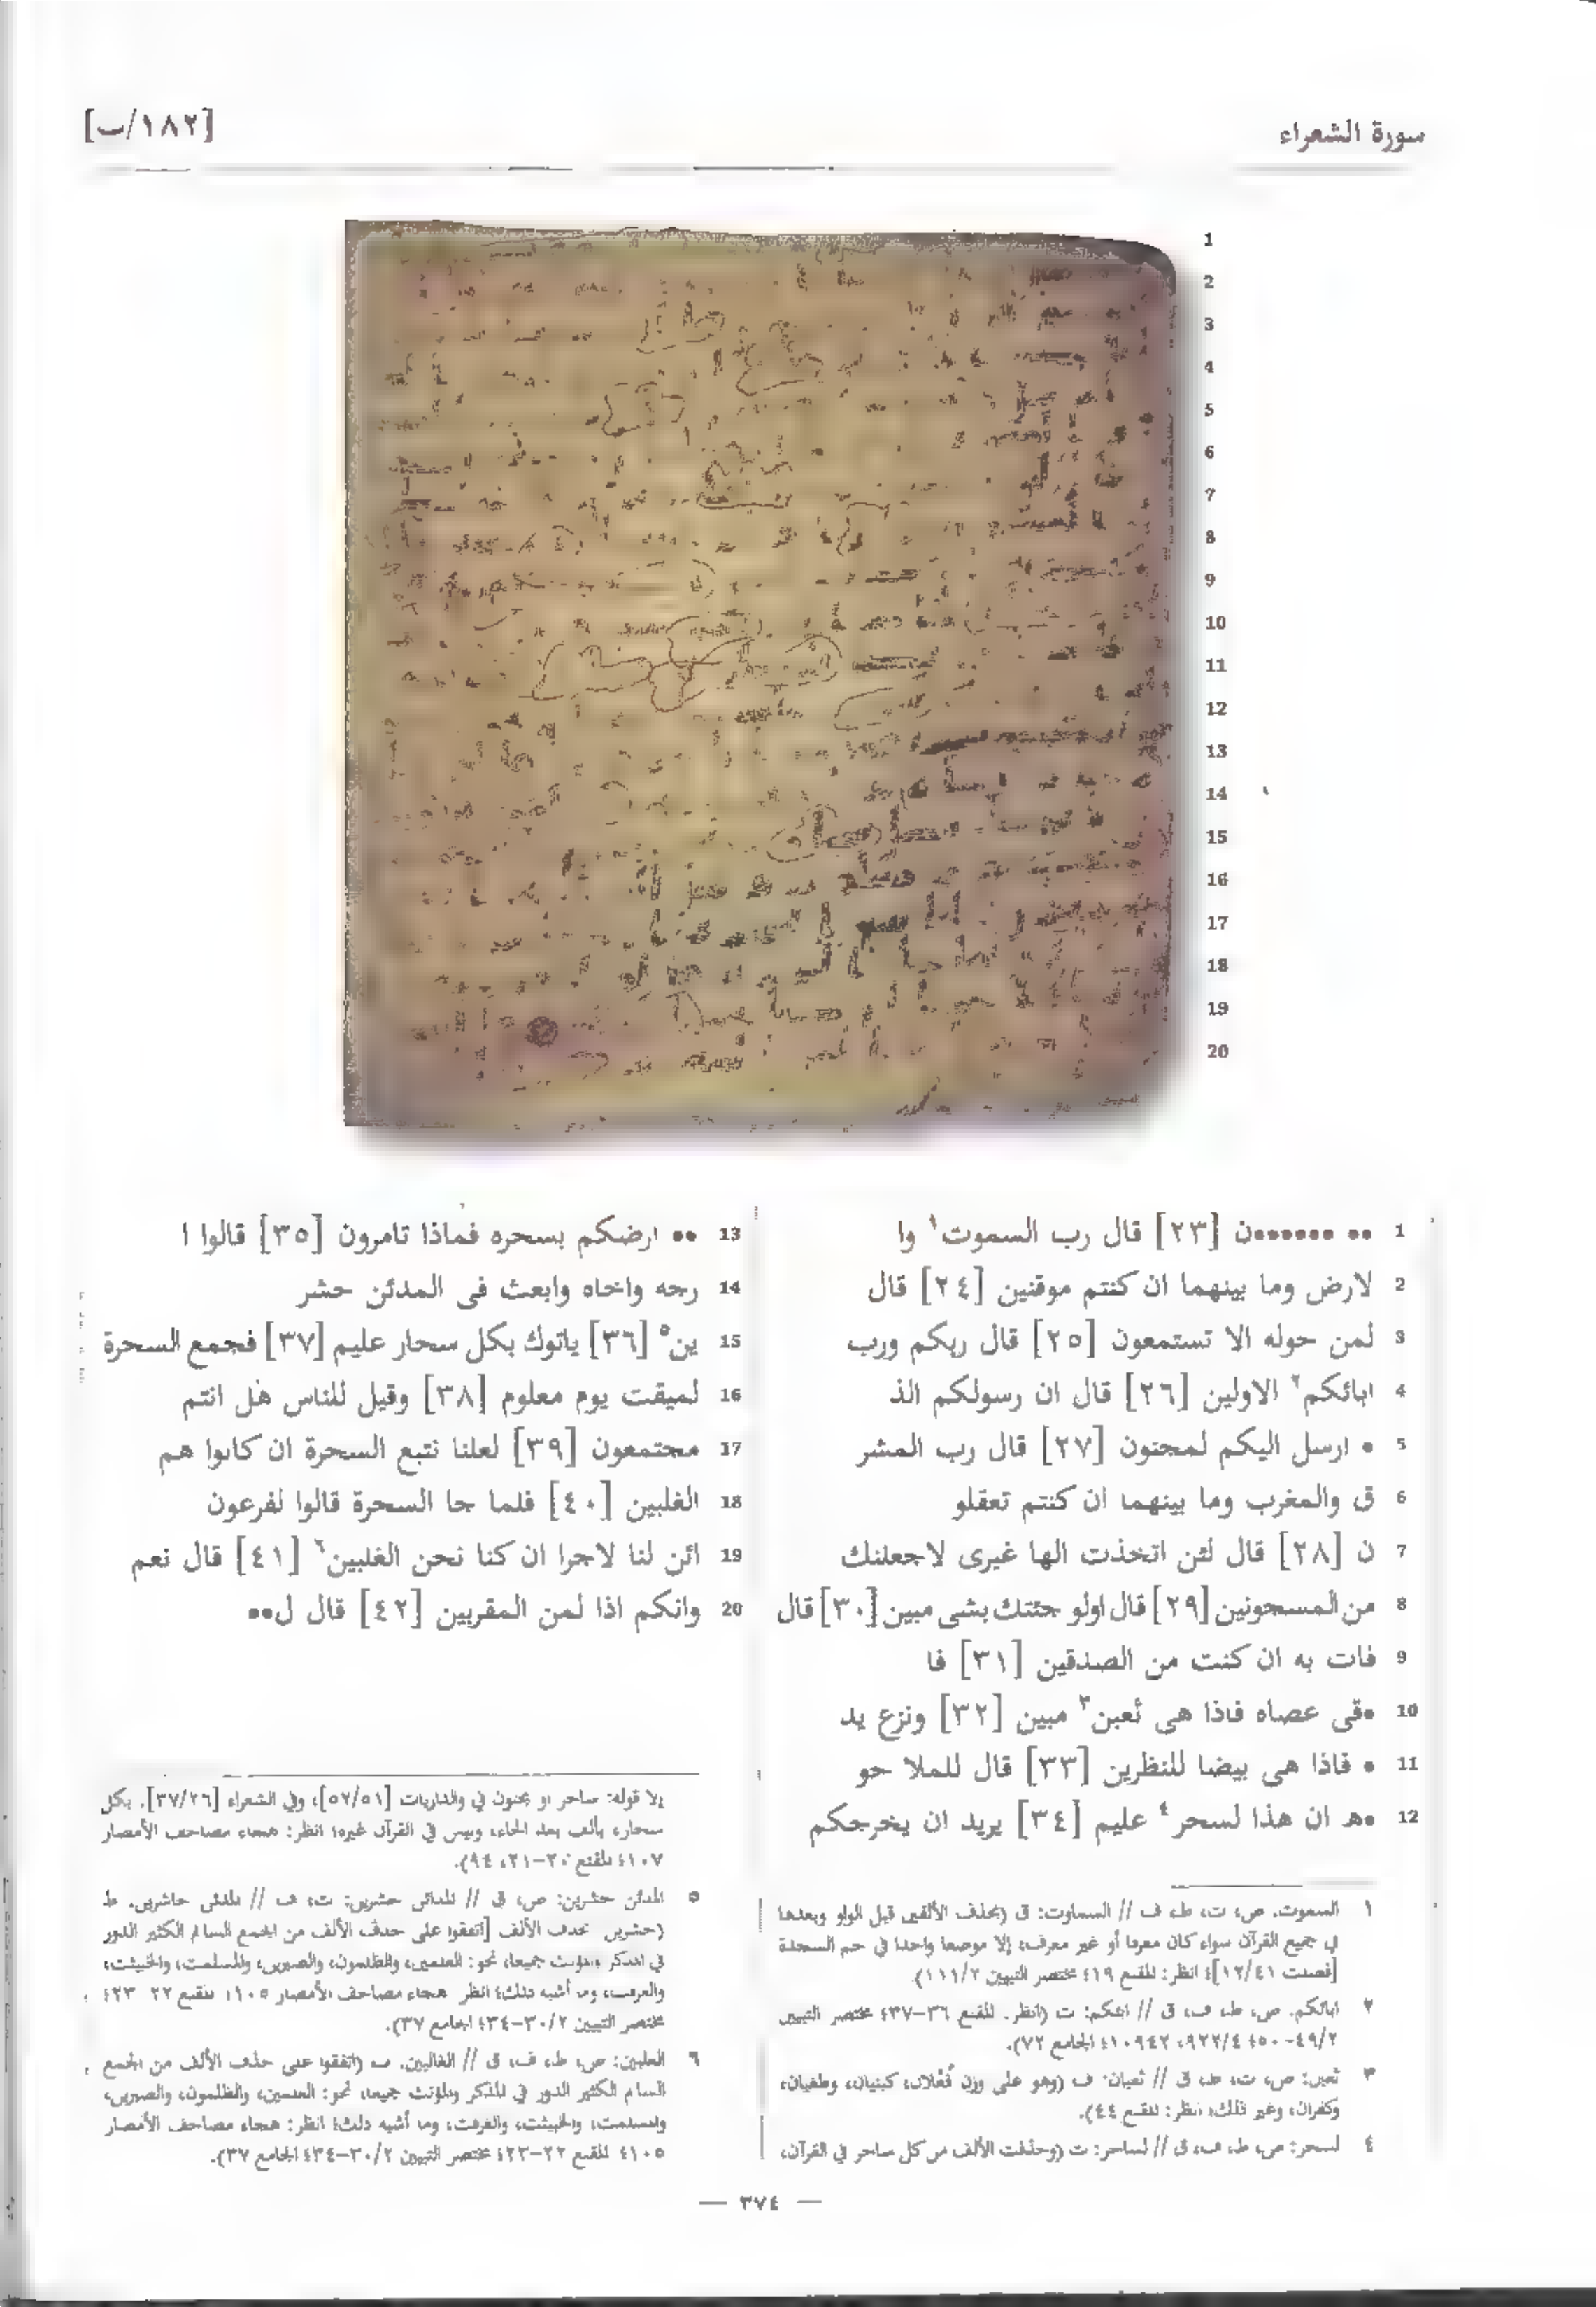 سورة الشعراء
[١٨٢/ب]
1
2
3
4
5
6
7
8
9
10
11
12
13
14
15
16
17
18
19
20
1 •• •••••••ن [٢٣] قال رب السموت١ وا
2 لارض وما بينهما ان كنتم موقنين [٢٤] قال
3 لمن حوله الا تستمعون [٢٥] قال ربكم ورب
4 ابائكم٢ الاولين [٢٦] قال ان رسولكم الذ
5 • ارسل اليكم لمجنون [٢٧] قال رب المشر
6 ق والمغرب وما بينهما ان كنتم تعقلو
7 ن [٢٨] قال لئن اتخذت الها غيرى لاجعلنك
8 من المسجونين [٢٩] قال اولو جئتك بشى مبين [٣٠] قال
9 فات به ان كنت من الصدقين [٣١] فا
10 •قى عصاه فاذا هى ثعبن٣ مبين [٣٢] ونزع يد
11 • فاذا هى بيضا للنظرين [٣٣] قال للملا حو
12 •ه ان هذا لسحر٤ عليم [٣٤] يريد ان يخرجكم
13 •• ارضكم بسحره فماذا تامرون [٣٥] قالوا ا
14 رجه واخاه وابعث فى المدئن حشر
15 ين٥ [٣٦] ياتوك بكل سحار عليم [٣٧] فجمع السحرة
16 لميقت يوم معلوم [٣٨] وقيل للناس هل انتم
17 مجتمعون [٣٩] لعلنا نتبع السحرة ان كانوا هم
18 الغلبين [٤٠] فلما جا السحرة قالوا لفرعون
19 ائن لنا لاجرا ان كنا نحن الغلبين٦ [٤١] قال نعم
20 وانكم اذا لمن المقربين [٤٢] قال ل••
١ السموت: ص، ت، ط، ف // السماوت: ق (بحذف الألفين قبل الواو وبعدها
في جميع القرآن سواء كان معرفا أو غير معرف، إلا موضعا واحدا في حم السجدة
[فصلت ١٢/٤١]؛ انظر: المقنع ١٩؛ مختصر التبيين ١١١/٢).
٢ ابائكم: ص، ط، ف، ق // ابئكم: ت (انظر: المقنع ٣٦-٣٧؛ مختصر التبيين
٤٩/٢-٥٠؛ ٩٢٢/٤، ٩٤٢، ١٠؛ الجامع ٧٢).
٣ ثعبن: ص، ت، ط، ق // ثعبان: ف (وهو على وزن فُعْلان، كبنيان، وطغيان،
وكفران، وغير ذلك؛ انظر: المقنع ٤٤).
٤ لسحر: ص، ط، ف، ق // لساحر: ت (وحذفت الألف من كل ساحر في القرآن،
إلا قوله: ساحر او مجنون في والذاريات [٥٢/٥١]، وفي الشعراء [٣٧/٢٦]. بكل
سحار، بألف بعد الحاء، وليس في القرآن غيره؛ انظر: هجاء مصاحف الأمصار
١٠٧؛ المقنع ٢٠-٢١، ٩٤).
٥ المدئن حشرين: ص، ق // المدائن حشرين: ت، ف // المدئن حاشرين: ط
(حشرين بحذف الألف [اتفقوا على حذف الألف من الجمع السالم الكثير الدور
في المذكر والمؤنث جميعا، نحو: العلمين، والظلمون، والصبرين، والمسلمت، والخبيثت،
والغرفت، وما أشبه ذلك؛ انظر: هجاء مصاحف الأمصار ١٠٥؛ المقنع ٢٢-٢٣؛
مختصر التبيين ٣٠/٢-٣٤؛ الجامع ٣٧).
٦ الغلبين: ص، ط، ف، ق // الغالبين: ت (اتفقوا على حذف الألف من الجمع
السالم الكثير الدور في المذكر والمؤنث جميعا، نحو: العلمين، والظلمون، والصبرين،
والمسلمت، والخبيثت، والغرفت، وما أشبه ذلك؛ انظر: هجاء مصاحف الأمصار
١٠٥؛ المقنع ٢٢-٢٣؛ مختصر التبيين ٣٠/٢-٣٤؛ الجامع ٣٧).
— ٣٧٤ —